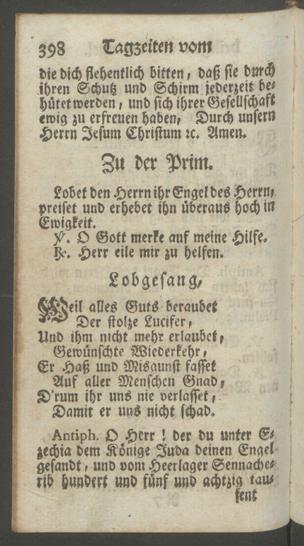 398 Tagzeiten vom
die dich flehentlich bitten, daß sie durch
ihren Schutz und Schirm jederzeit be-
hütet werden, und sich ihrer Gesellschaft
ewig zu erfreuen haben, Durch unsern
Herrn Jesum Christum ꝛc. Amen.
Zu der Prim.
Lobet den Herrn ihr Engel des Herrn,
preiset und erhebet ihn überaus hoch in
Ewigkeit.
℣. O Gott merke auf meine Hilfe.
℟. Herr eile mir zu helfen.
Lobgesang,
Weil alles Guts beraubet
Der stolze Lucifer,
Und ihm nicht mehr erlaubet,
Gewünschte Wiederkehr,
Er Haß und Misgunst fasset
Auf aller Menschen Gnad,
D'rum ihr uns nie verlasset,
Damit er uns nicht schad.
Antiph. O Herr! der du unter E-
zechia dem Könige Juda deinen Engel
gesandt, und vom Heerlager Sennache-
rib hundert und fünf und achtzig tau-
sent